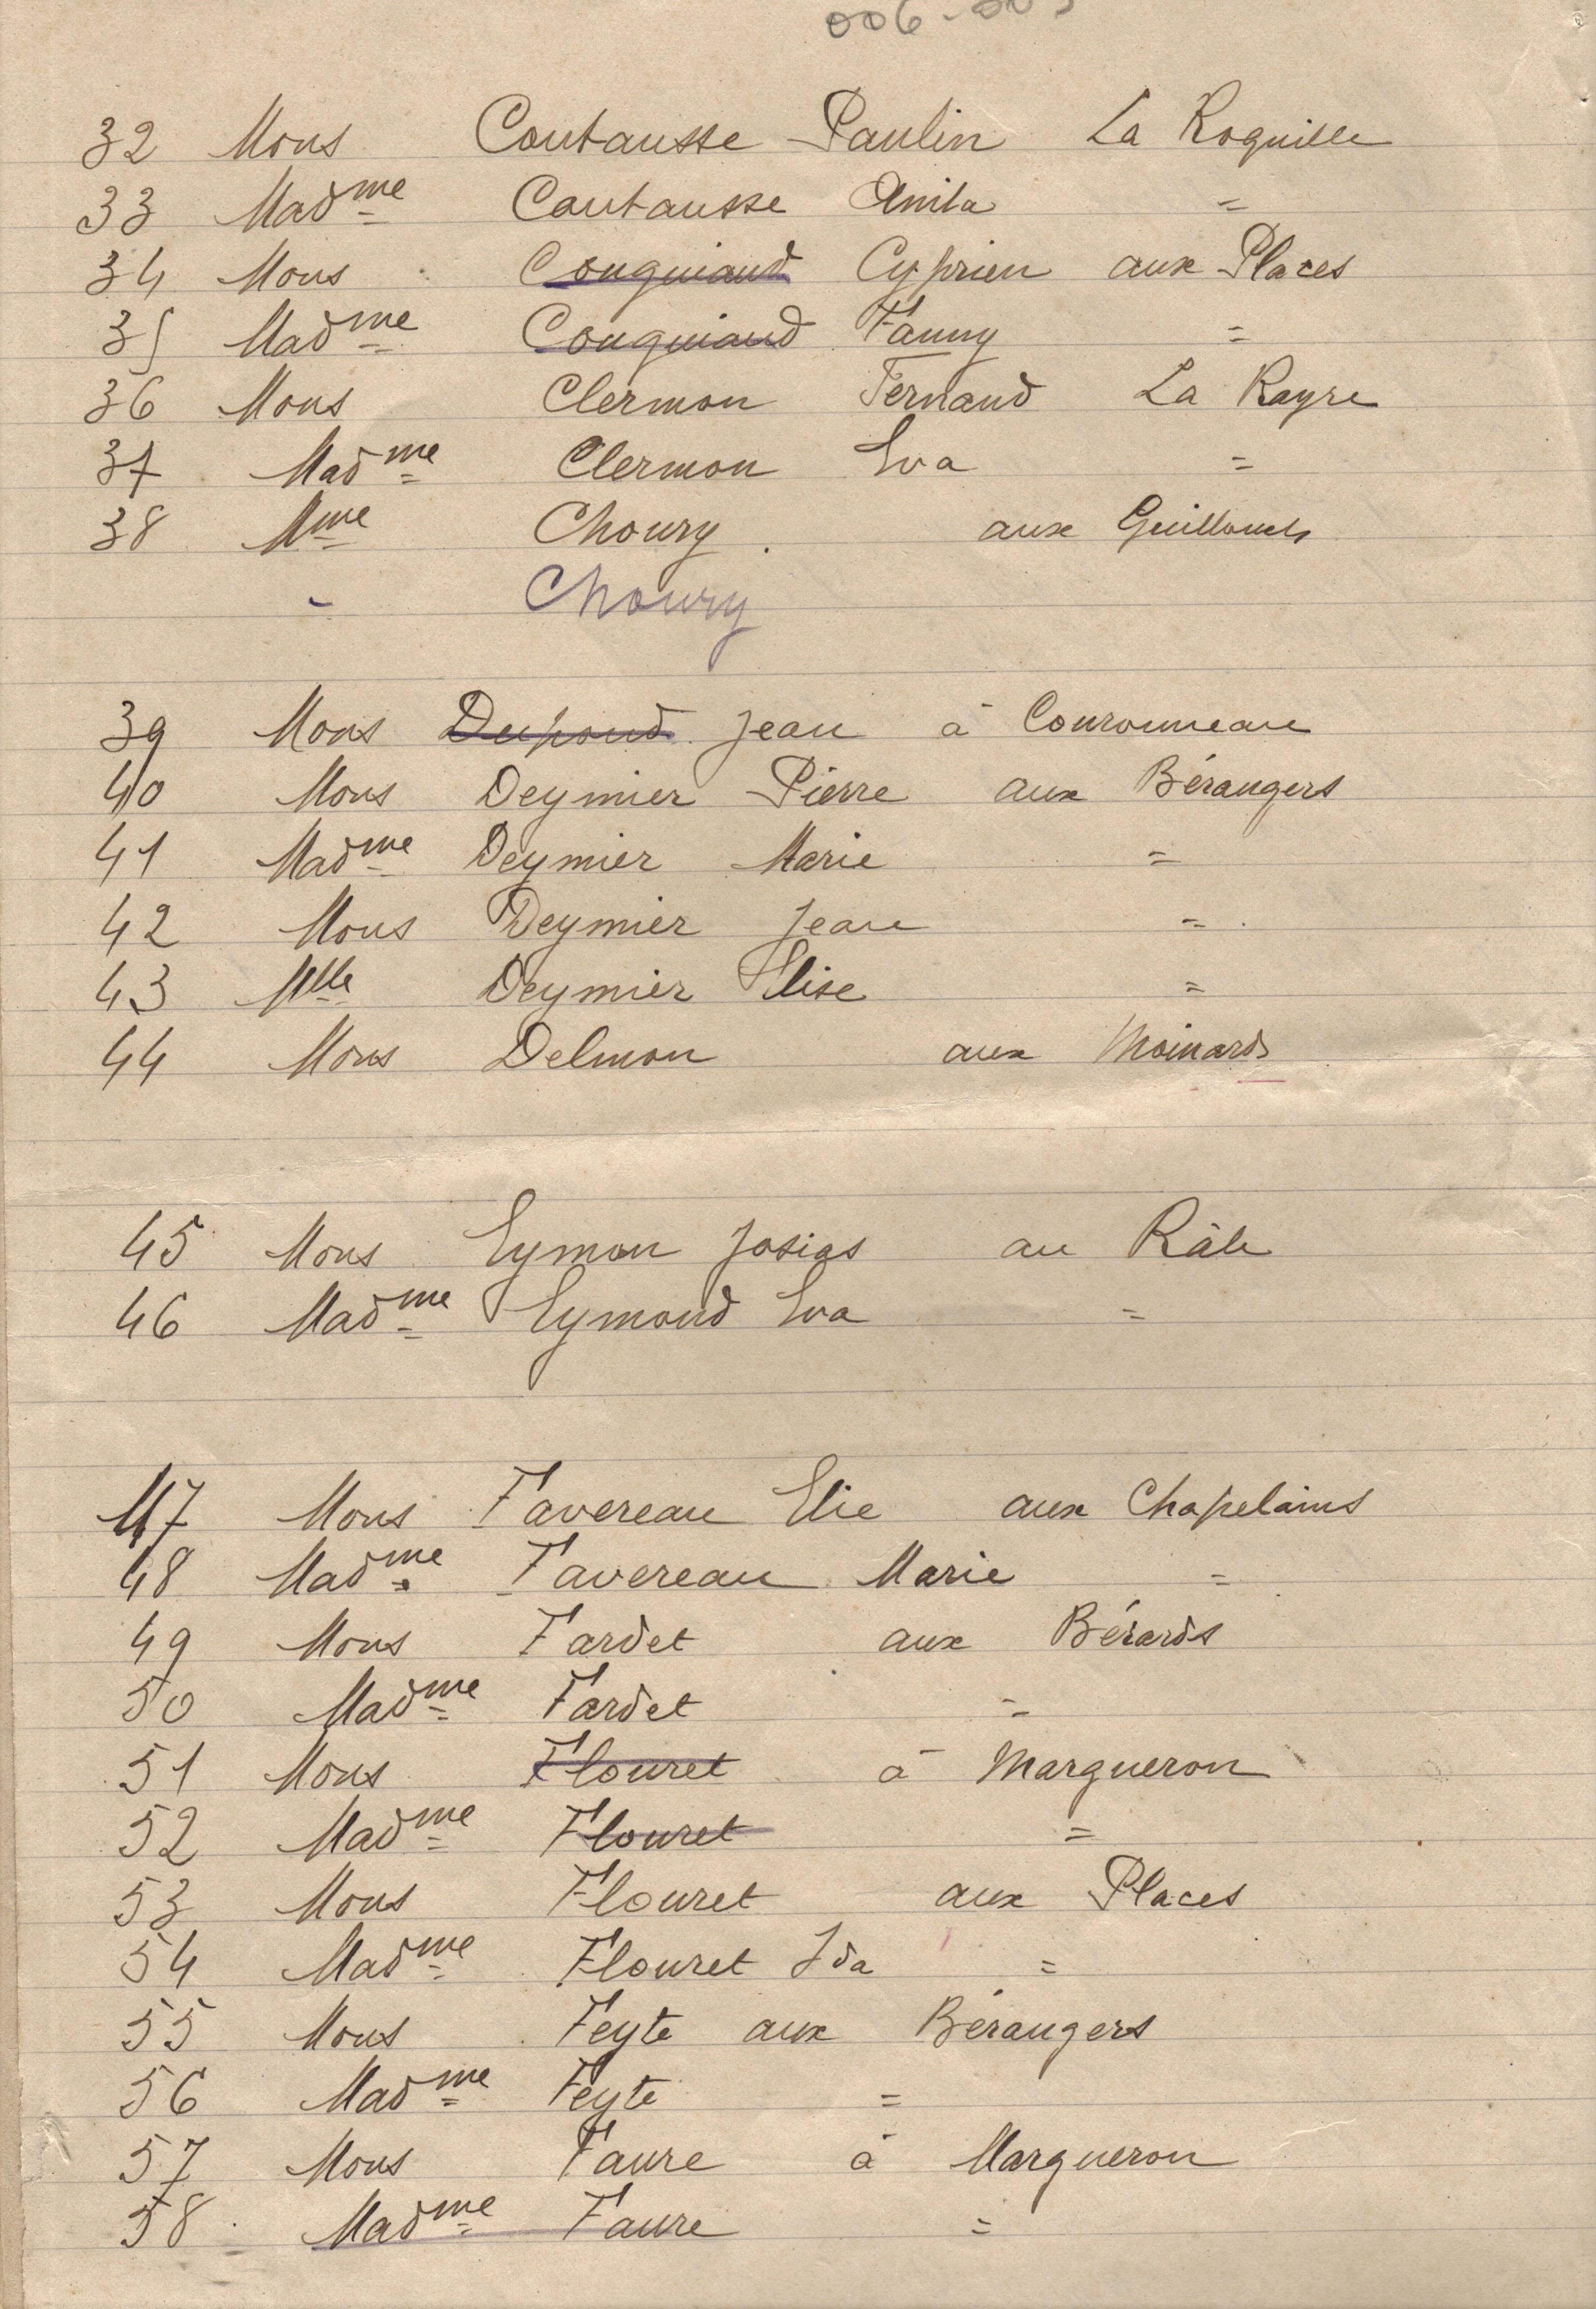 006-
32 Mons Coutausse Paulin La Roquille
33 Madme Coutausse Anita =
34 Mons Couquiaud Cyprien aux Places
35 Madme Couquiaud Fanny =
36 Mons Clermon Fernand La Rayre
37 Madme Clermon Eva =
38 Mme Choury aux
- Choury
39 Mons Dupond Jean à Couronneau
40 Mons Deymier Pierre aux Bérangers
41 Madme Deymier Marie =
42 Mons Deymier Jean =
43 Mlle Deymier Elise =
44 Mons Delmon aux Moinards
45 Mons Eymon Josias au Râle
46 Madme Eymond Eva =
47 Mons Favereau Elie aux Chapelains
48 Madme Favereau Marie =
49 Mons Fardet aux Bérards
50 Madme Fardet =
51 Mons Flouret à Margueron
52 Madme Flouret =
53 Mons Flouret aux Places
54 Madme Flouret Ida =
55 Mons Feyte aux Bérangers
56 Madme Feyte =
57 Mons Faure à Margueron
58 Madme Faure =